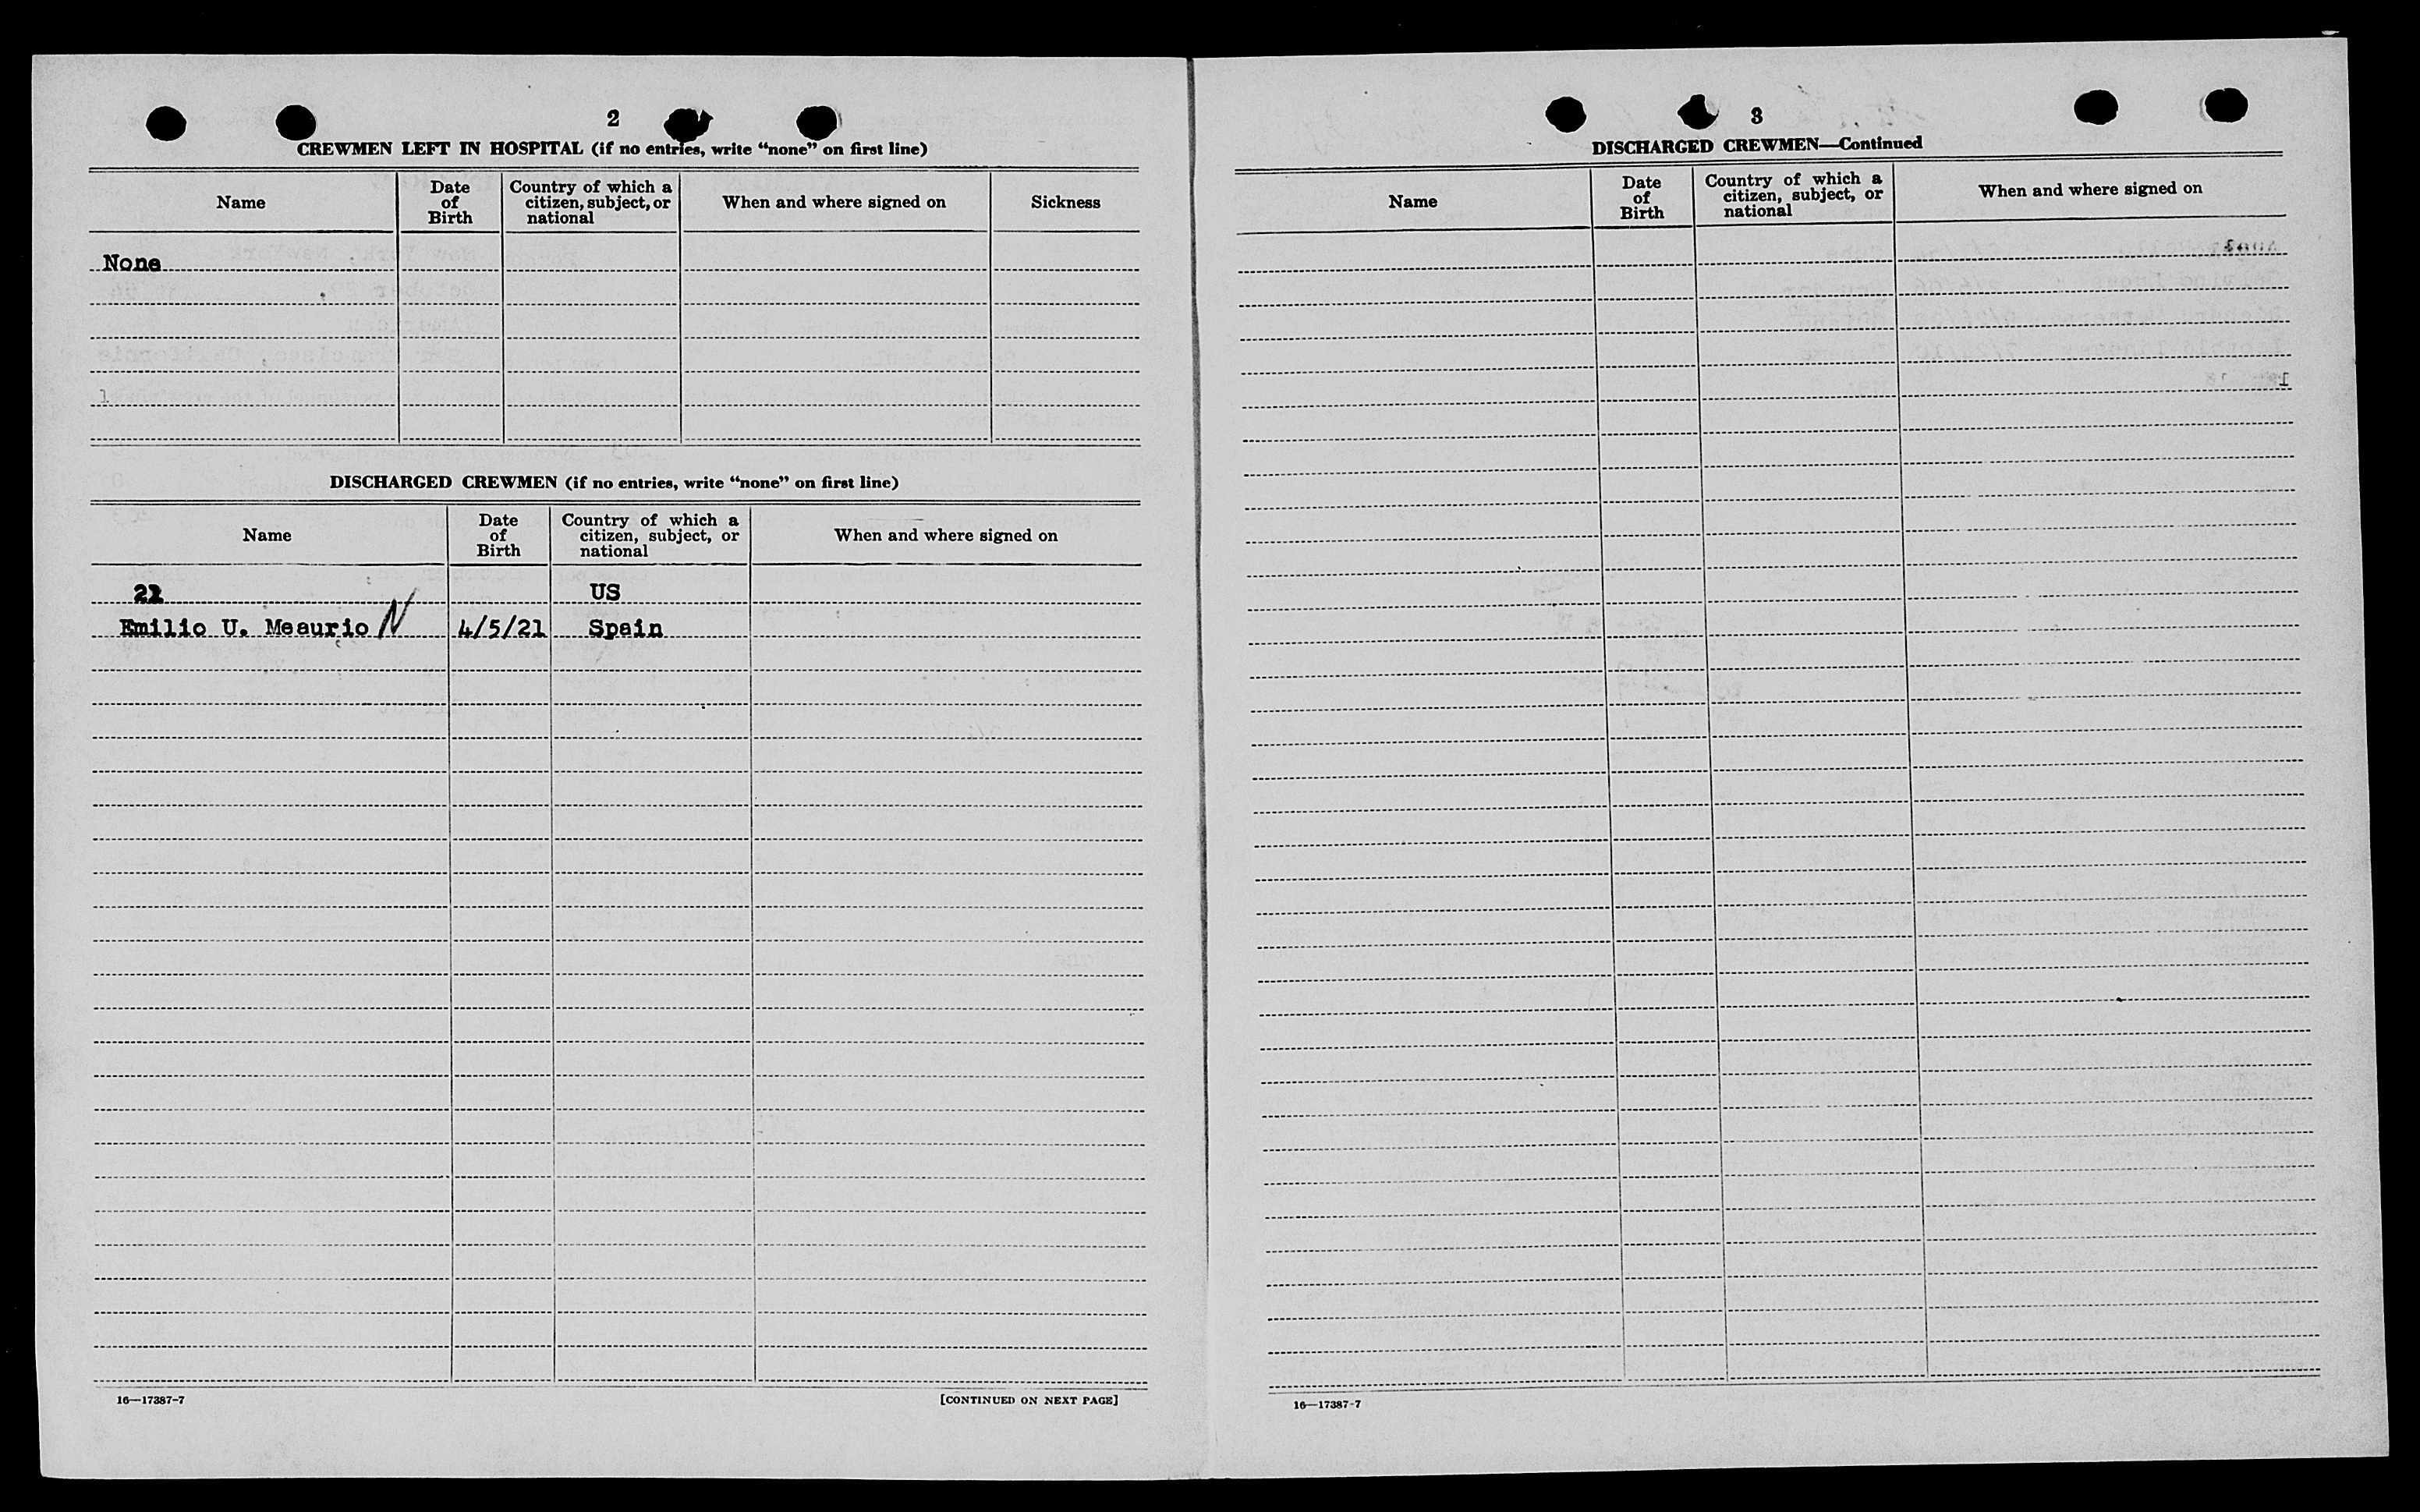 2
CREWMEN LEFT IN HOSPITAL (if no entries, write “none” on first line)
Name
Date of Birth
Country of which a citizen, subject, or national
When and where signed on
Sickness
None
DISCHARGED CREWMEN (if no entries, write “none” on first line)
Name
Date of Birth
Country of which a citizen, subject, or national
When and where signed on
US
Emilio U. Meaurio N 4/5/21 Spain
16—17387-7
[CONTINUED ON NEXT PAGE]
3
DISCHARGED CREWMEN—Continued
Name
Date of Birth
Country of which a citizen, subject, or national
When and where signed on
16—17387-7